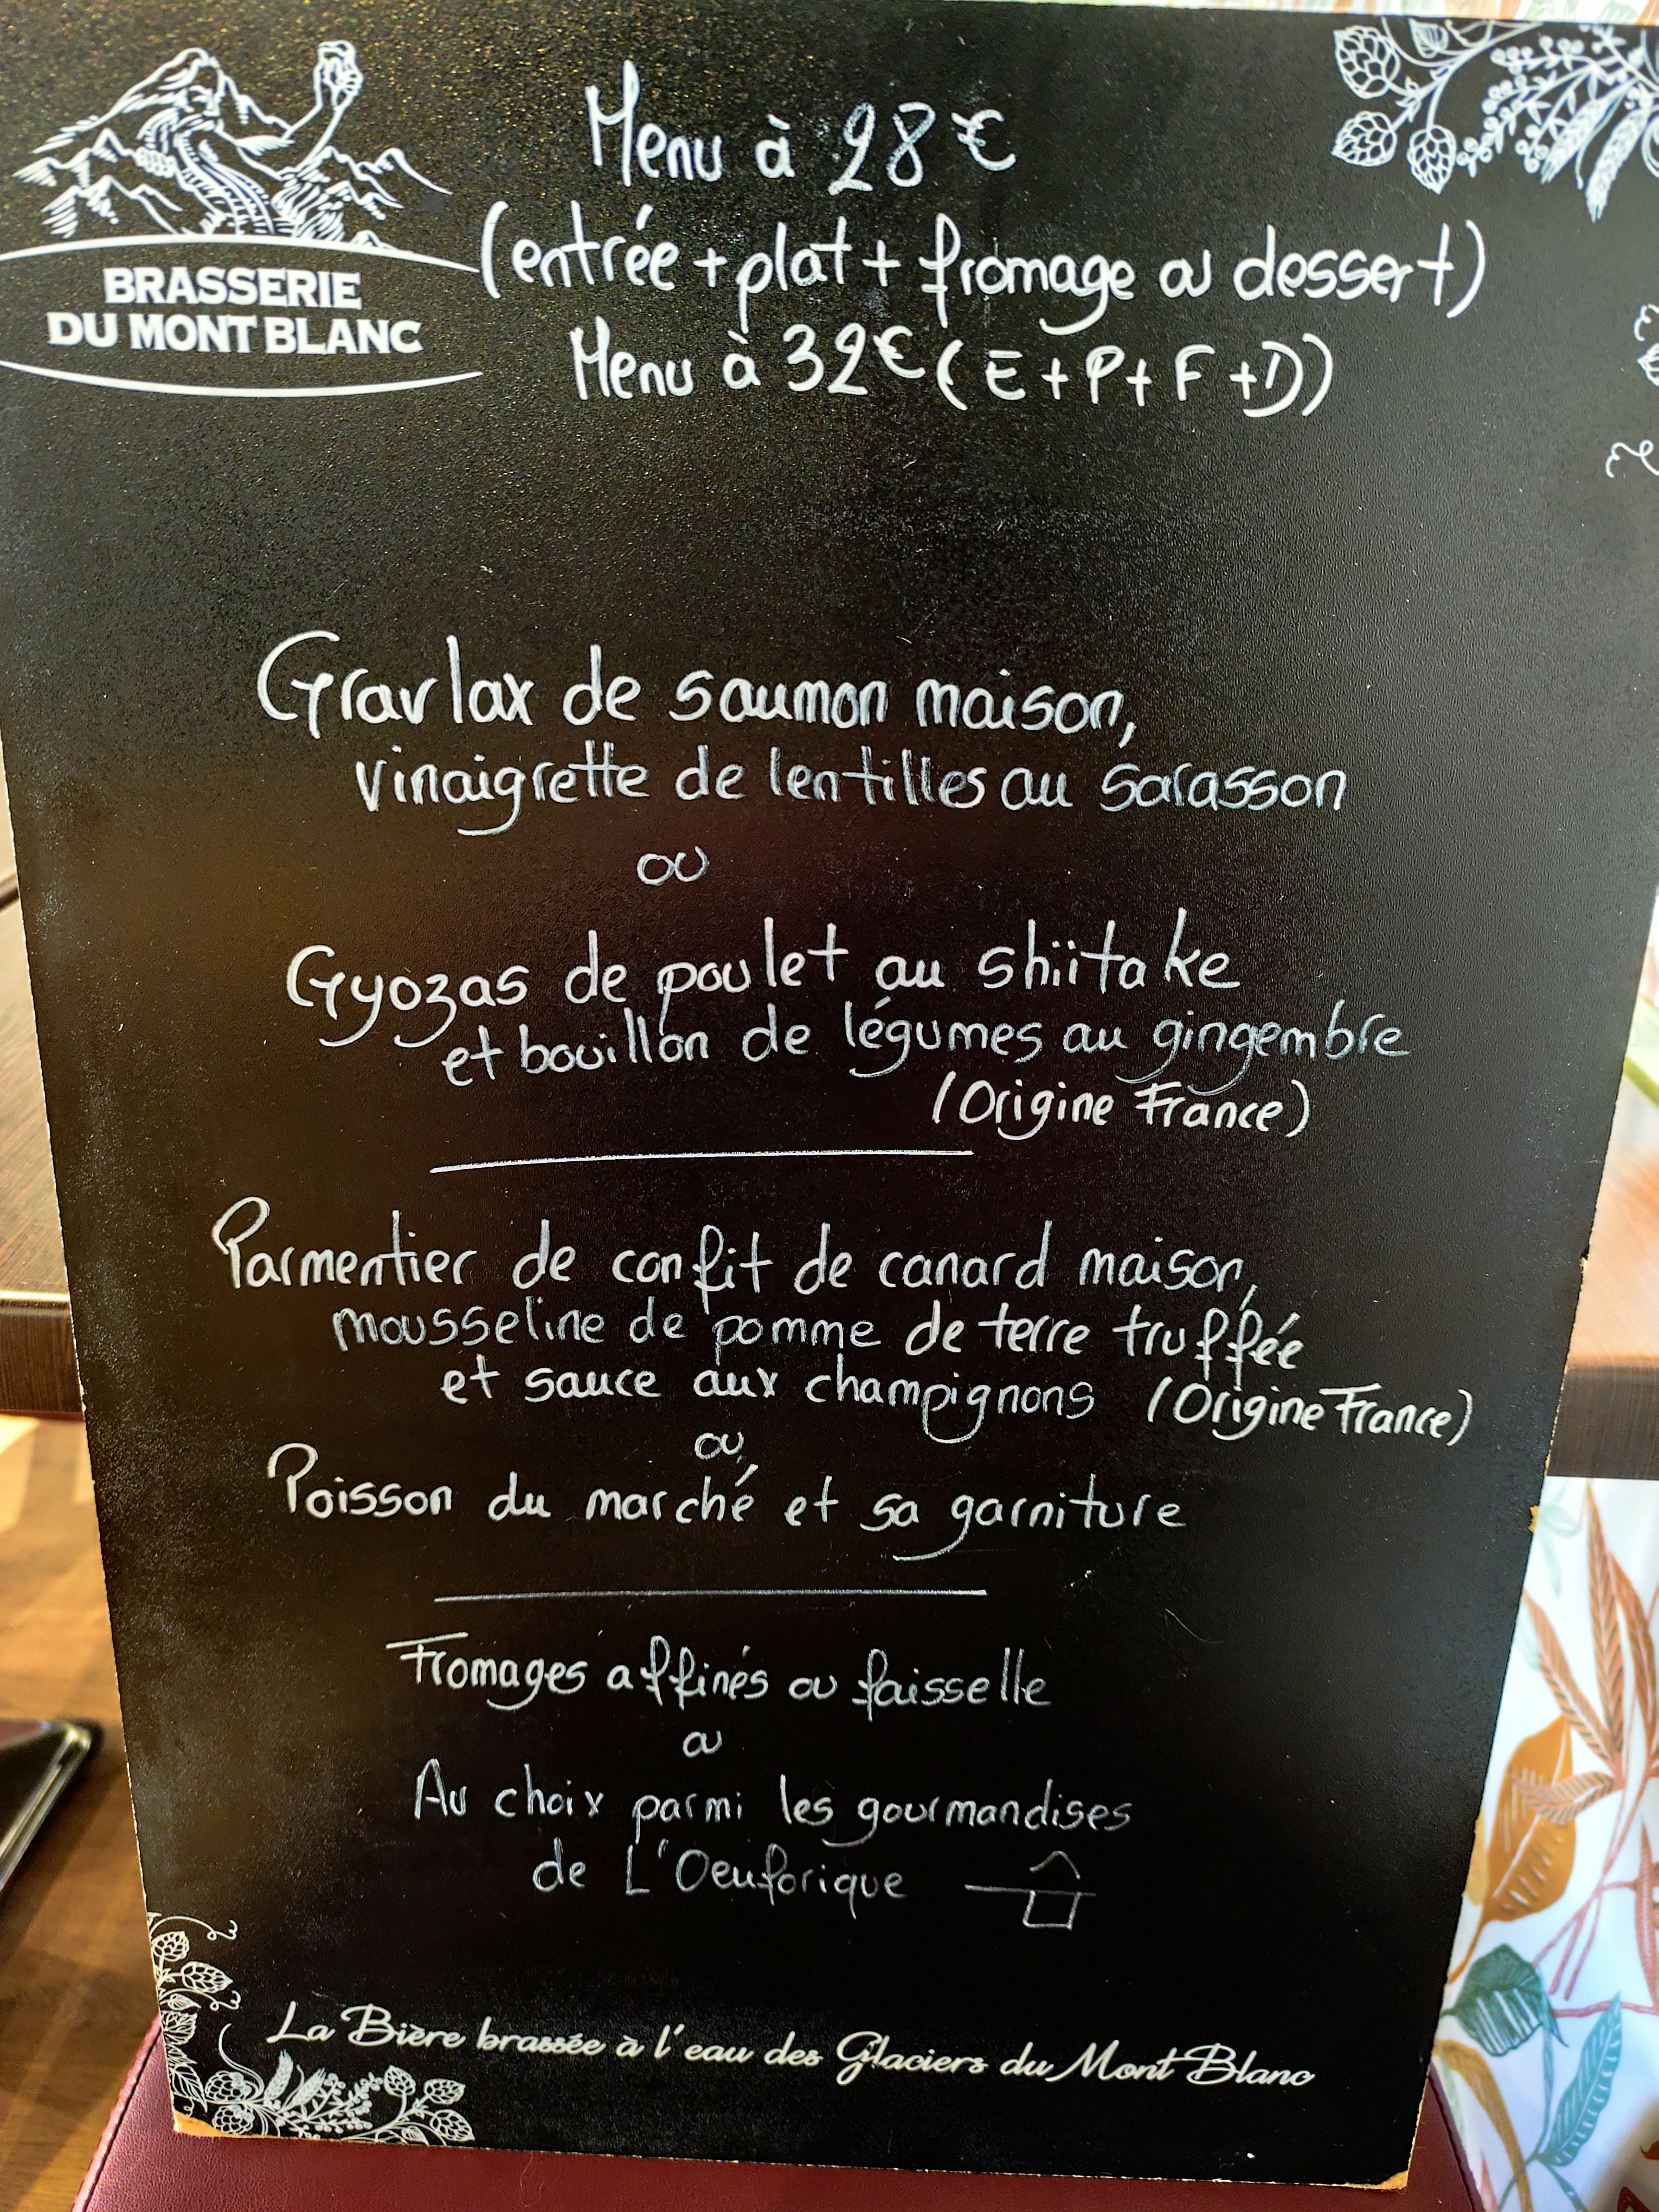 Menu à 28€
(entrée + plat + fromage ou dessert)
BRASSERIE
DU MONT BLANC
Menu à 32€ (E+P+F+D)
Gravlax de saumon maison,
vinaigrette de lentilles au sarasson
ou
Gyozas de poulet au shiitake
et bouillon de légumes au gingembre
(Origine France)
Parmentier de confit de canard maison,
mousseline de pomme de terre truffée
et sauce aux champignons (Origine France)
ou
Poisson du marché et sa garniture
Fromages affinés ou faisselle
ou
Au choix parmi les gourmandises
de L'Oeuforique
La Bière brassée à l'eau des Glaciers du Mont Blanc